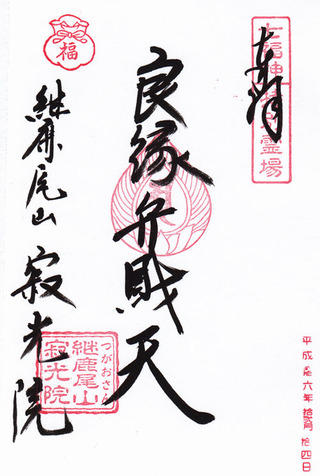 奉拝
七福神霊場
良縁弁財天
福
継鹿尾山 寂光院
つがおさん
継鹿尾山
寂光院
平成六年拾四日